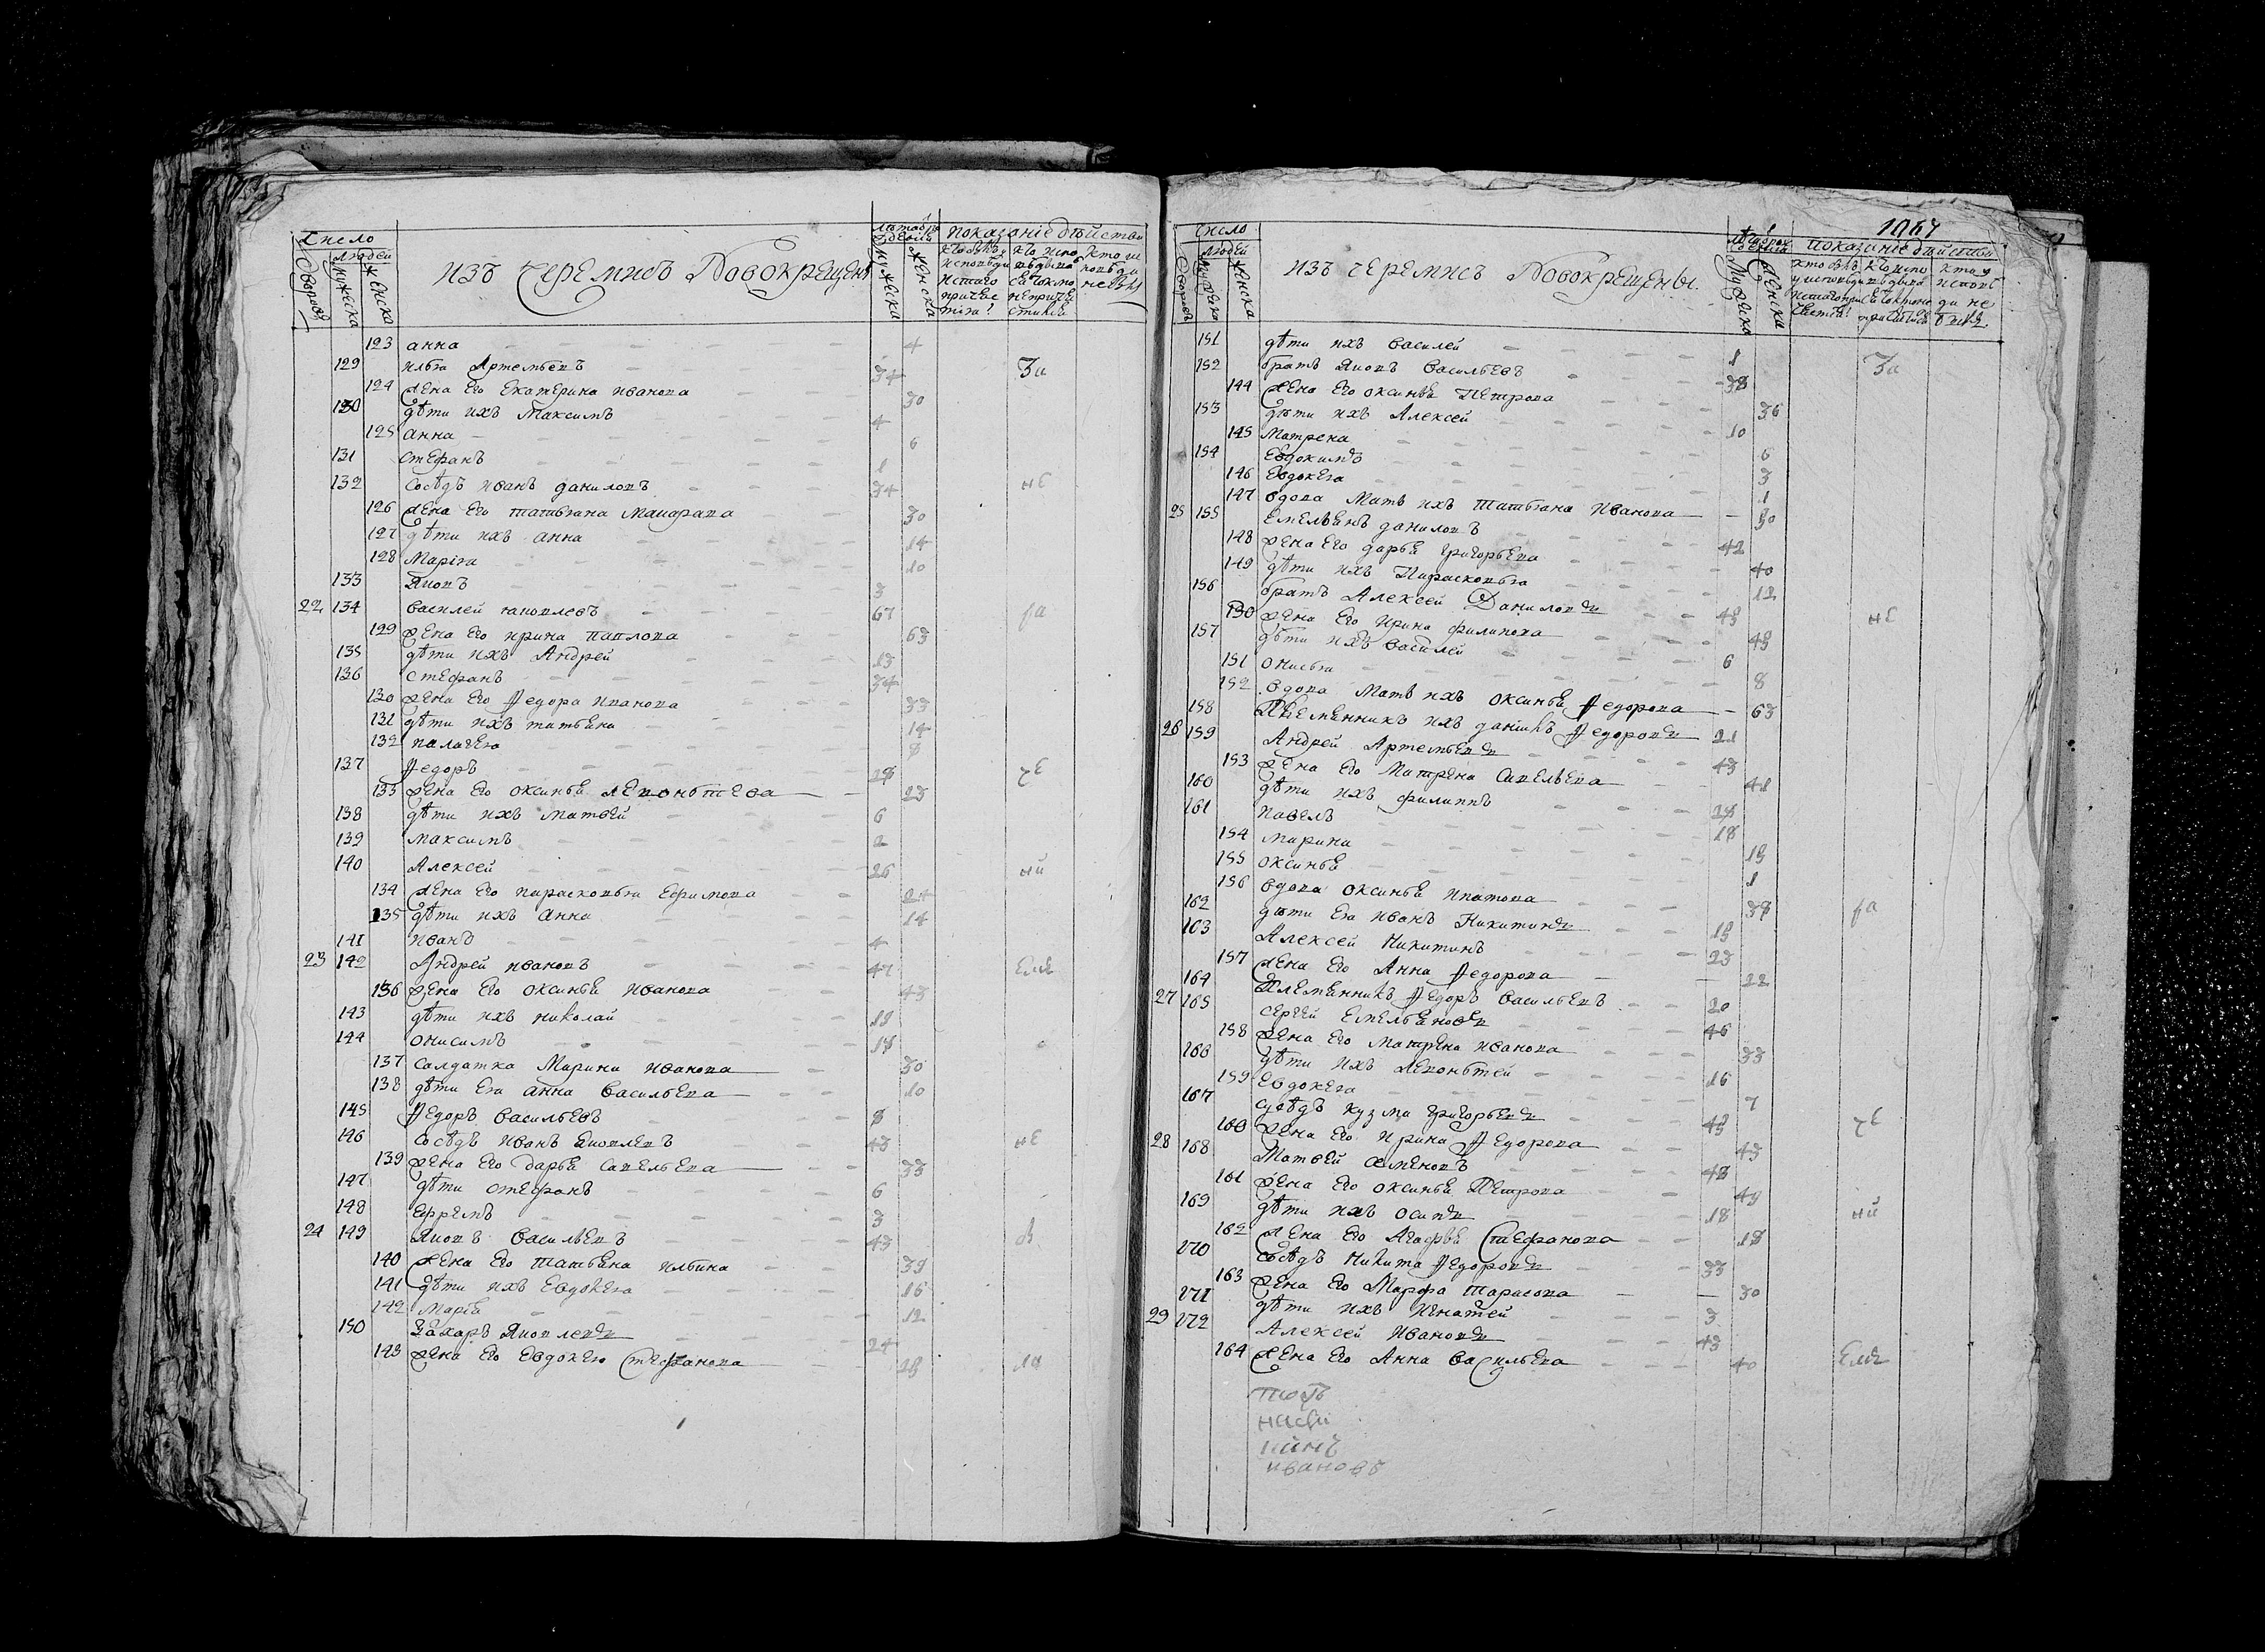 Число
Дворовъ
людей
мужеска
женска
изъ Черемисъ Новокрещены
мужеска
женска
показание действи
123 анна 4
129 илья Артемьевъ 34 За
124 жена Его Екатерина иванова 30
130 дѣти ихъ Максимъ 4
125 анна 6
131 Стефанъ 1
132 сосѣдъ иванъ даниловъ 34 не
126 жена Его татьяна Макарова 30
127 дѣти ихъ анна 14
128 Марія 10
133 Яковъ 3
22 134 василей яковлевъ 67 ра
129 жена Его ирина павлова 63
135 дѣти ихъ Андрей 13
136 стефанъ 34
130 жена Его Ѳедора иванова 33
131 дѣти ихъ татьяна 14
132 палагея 8
137 Ѳедоръ 28 де
133 жена Его оксинья леоньтева 23
138 дѣти ихъ матвей 6
139 максимъ 2
140 Алексей 26 ни
134 жена Его парасковья Ефимова 24
135 дѣти ихъ анна 14
141 иванъ 4
23 142 Андрей ивановъ 47 Емъ
136 жена Его оксинья иванова 43
143 дѣти ихъ николай 19
144 онисимъ 18
137 салдатка Марина иванова 30
138 дѣти Ея анна васильева 10
145 Ѳедоръ васильевъ 8
146 сосѣдъ иванъ яковлевъ 43 не
139 жена Его дарья савельева 33
147 дѣти стефанъ 6
148 Ефремъ 3
24 149 Яковъ васильевъ 43
140 жена Его татьяна ильина 39
141 дѣти ихъ Евдокея 16
142 Марья 12
150 Захаръ Яковлевъ 24
143 жена Его Евдокея Стефанова 23
1067
Число
Дворовъ
людей
мужеска
женска
изъ черемисъ Новокрещены
мужеска
женска
показание действи
151 дѣти ихъ василей 1
152 братъ Яковъ васильевъ 38 За
144 жена Его оксинья Петрова 36
153 дѣти ихъ Алексей 10
145 Матрена 6
154 Евдокимъ 3
146 Евдокея 1
147 вдова Мать ихъ татьяна иванова 80
25 155 Емельянъ даниловъ 42
148 жена Его дарья григорьева 40
149 дѣти ихъ Парасковья 12
156 братъ Алексей Даниловъ 43 не
150 жена Его ирина филипова 43
157 дѣти ихъ василей 6
151 онисья 8
152 вдова Мать ихъ оксинья Ѳедорова 63
158 Племянникъ ихъ данилъ Ѳедоровъ 21
26 159 Андрей Артемьевъ 43
153 жена Его Матрена савельева 41
160 дѣти ихъ филиппъ 24
161 павелъ 18
154 марина 15
155 оксинья 1
156 вдова оксинья ипатова 38 ра
162 дѣти Ея иванъ Никитинъ 19
163 Алексей Никитинъ 23
157 жена Его Анна Ѳедорова 22
164 Племянникъ Ѳедоръ васильевъ 20
27 165 сергей Емельяновъ 46
158 жена Его матрена иванова 33
166 дѣти ихъ леоньтей 16
159 Евдокея 7
167 сусѣдъ кузма григорьевъ 43 де
160 жена Его ирина Ѳедорова 43
28 168 Матвей семеновъ 48
161 жена Его оксинья Петрова 49
169 дѣти ихъ осипъ 18 ни
162 жена Его Агафья Стефанова 18
170 сосѣдъ Никита Ѳедоровъ 33
163 жена Его Марфа тарасова 30
171 дѣти ихъ игнатей 3
29 172 Алексей ивановъ 43
164 жена Его Анна васильева 40 Емъ
ивановъ